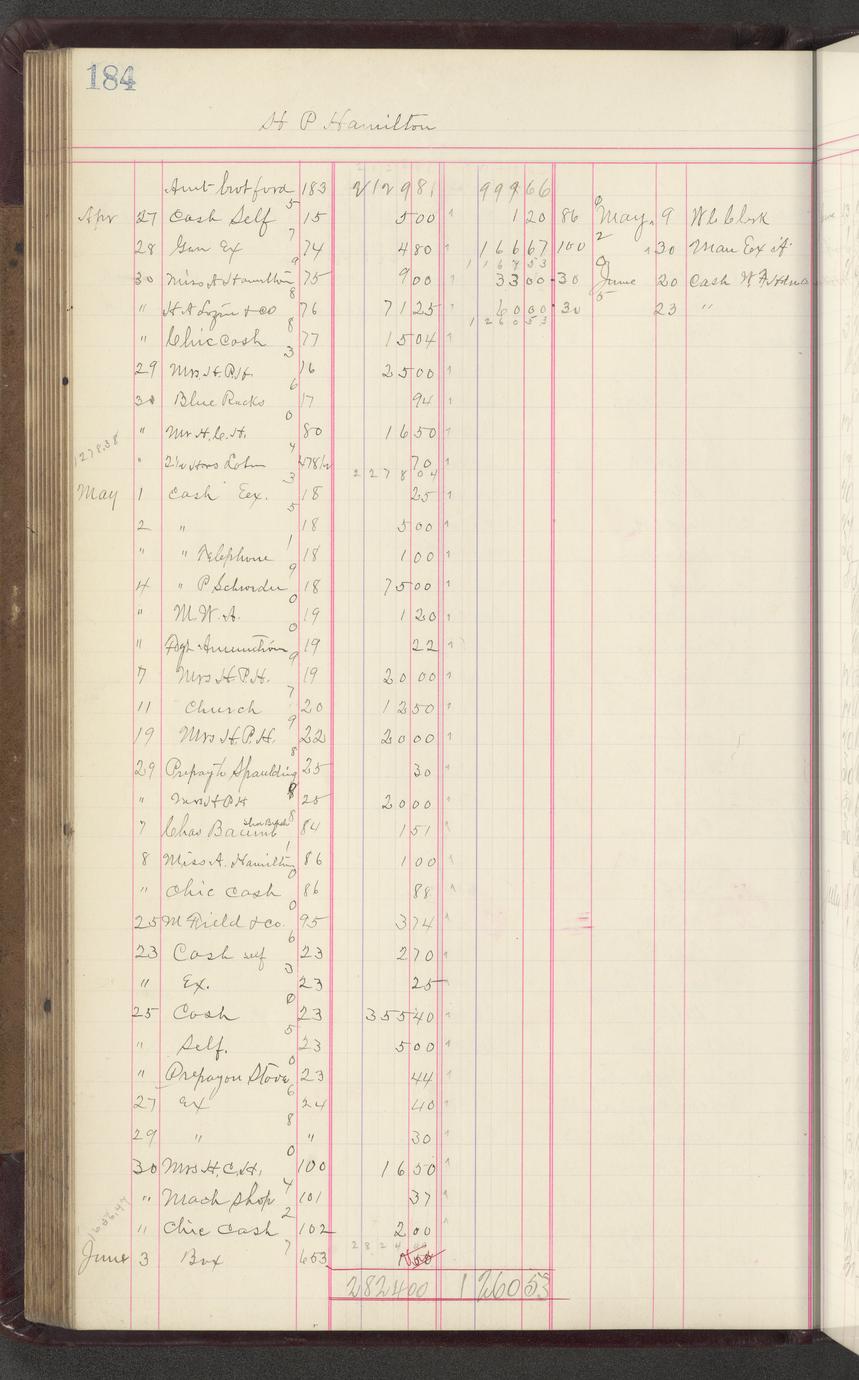 184
H P Hamilton
Amt brot forw 183 2129 81 999 66
Apr 27 Cash Self 15 5 00 1 20 86 May 9 W C Clark
28 Gen Ex 74 4 80 166 67 100 " 30 Man Ex a/c
1 1 6 7 5 3
30 Miss A Hamilton 75 9 00 33 00 30 June 20 Cash
" & Co 76 71 25 60 00 30 23 "
1 2 6 0 5 3
" Chic Cash 77 15 04
29 Mrs. H. P. H. 16 25 00
30 Blue Racks 17 94
" Mr H. C. H. 80 16 50
1278.38
" 70
2 2 7 8 0 4
May 1 Cash Ex. 18 25
2 " 18 5 00
" " Telephone 18 1 00
4 " P Schroder 18 75 00
" M. W. A. 19 1 20
" Ammunition 19 22
7 Mrs H. P. H. 19 20 00
11 Church 20 12 50
19 Mrs H. P. H. 22 20 00
29 Prepay to Spaulding 25 30
" Mrs H P H 25 20 00
7 Chas 84 1 51
8 Miss A. Hamilton 86 1 00
" Chic Cash 86 88
25 M Field & Co. 95 3 74
23 Cash self 23 2 70
" Ex. 23 25
25 Cash 23 355 40
" Self. 23 5 00
" Prepay on Stove 23 44
27 Ex 24 40
29 " " 30
30 Mrs H. C. H. 100 16 50
" Mach Shop 101 37
" Chic Cash 102 2 00
2 8 2 4 00
June 3 Box 653
2824 00 1 260 53